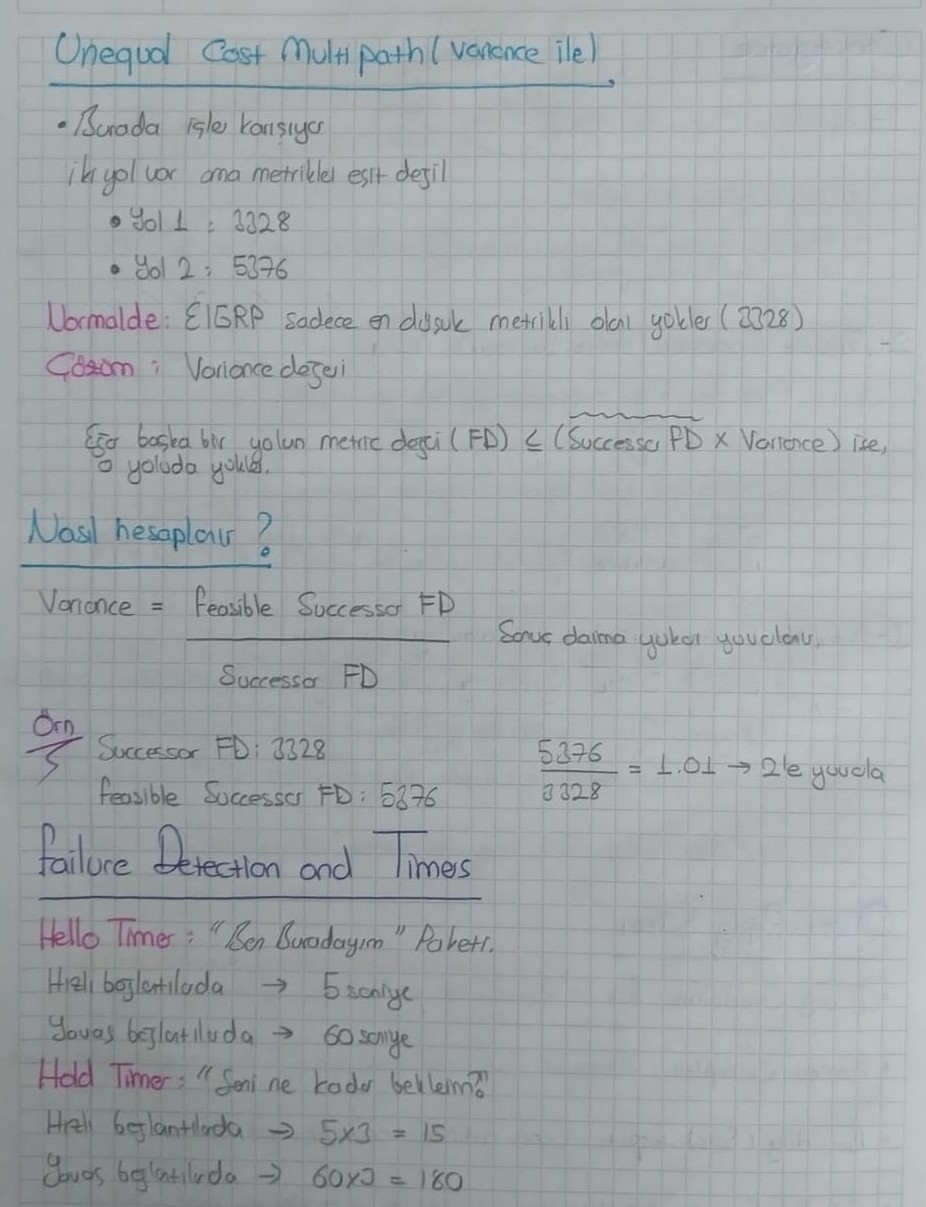 Unequal Cost Multipath (variance ile)
• Burada işler karışıyor
iki yol var ama metrikler eşit değil
• Yol 1 : 3328
• Yol 2 : 5376
Normalde: EIGRP sadece en düşük metrikli olanı yükler (3328)
Çözüm : Variance değeri
Eğer başka bir yolun metric değeri (FD) ≤ (Successor FD x Variance) ise,
o yoluda yükler.
Nasıl hesaplanır ?
Variance = Feasible Successor FD
Sonuç daima yukarı yuvarlanır.
Successor FD
Örn
Successor FD: 3328
5376
3328
= 1.01 → 2'e yuvarla
Feasible Successor FD: 5376
Failure Detection and Timers
Hello Timer : "Ben Buradayım" Paketi.
Hızlı bağlantılarda → 5 saniye
Yavaş bağlantılarda → 60 saniye
Hold Timer : "Seni ne kadar beklerim?"
Hızlı bağlantılarda → 5x3 = 15
Yavaş bağlantılarda → 60x3 = 180